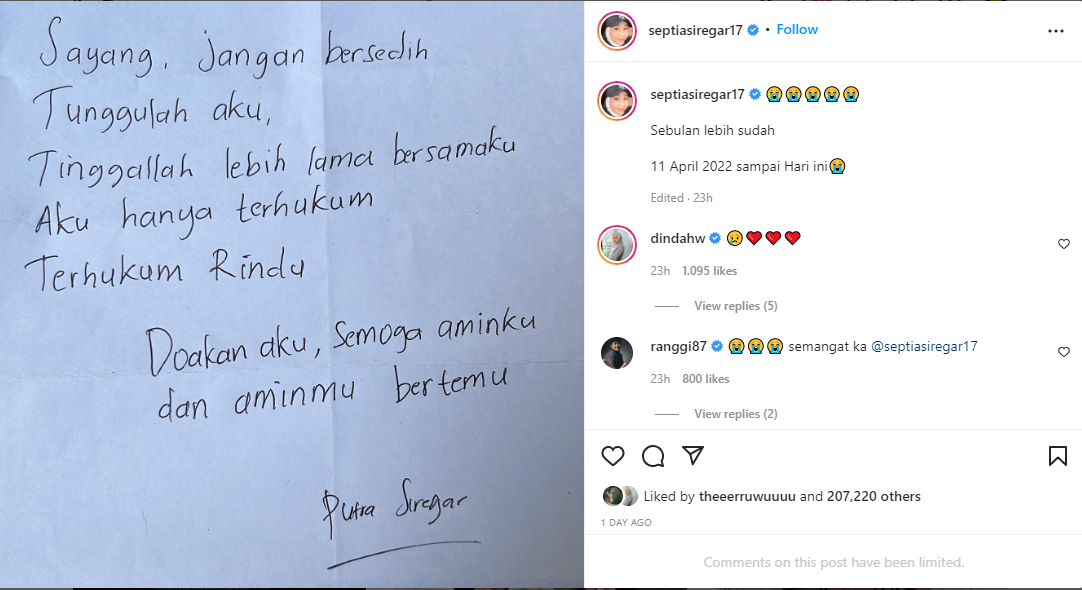 Sayang, jangan bersedih
Tunggulah aku,
Tinggallah lebih lama bersamaku
Aku hanya terhukum
Terhukum Rindu
Doakan aku, semoga aminku
dan aminmu bertemu
Putra Siregar
septiasiregar17 • Follow
septiasiregar17 😭😭😭😭😭
Sebulan lebih sudah
11 April 2022 sampai Hari ini😭
Edited · 23h
dindahw 😢❤️❤️❤️
23h 1.095 likes
View replies (5)
ranggi87 😭😭😭 semangat ka @septiasiregar17
23h 800 likes
View replies (2)
Liked by theeerruwuuuu and 207,220 others
1 DAY AGO
Comments on this post have been limited.